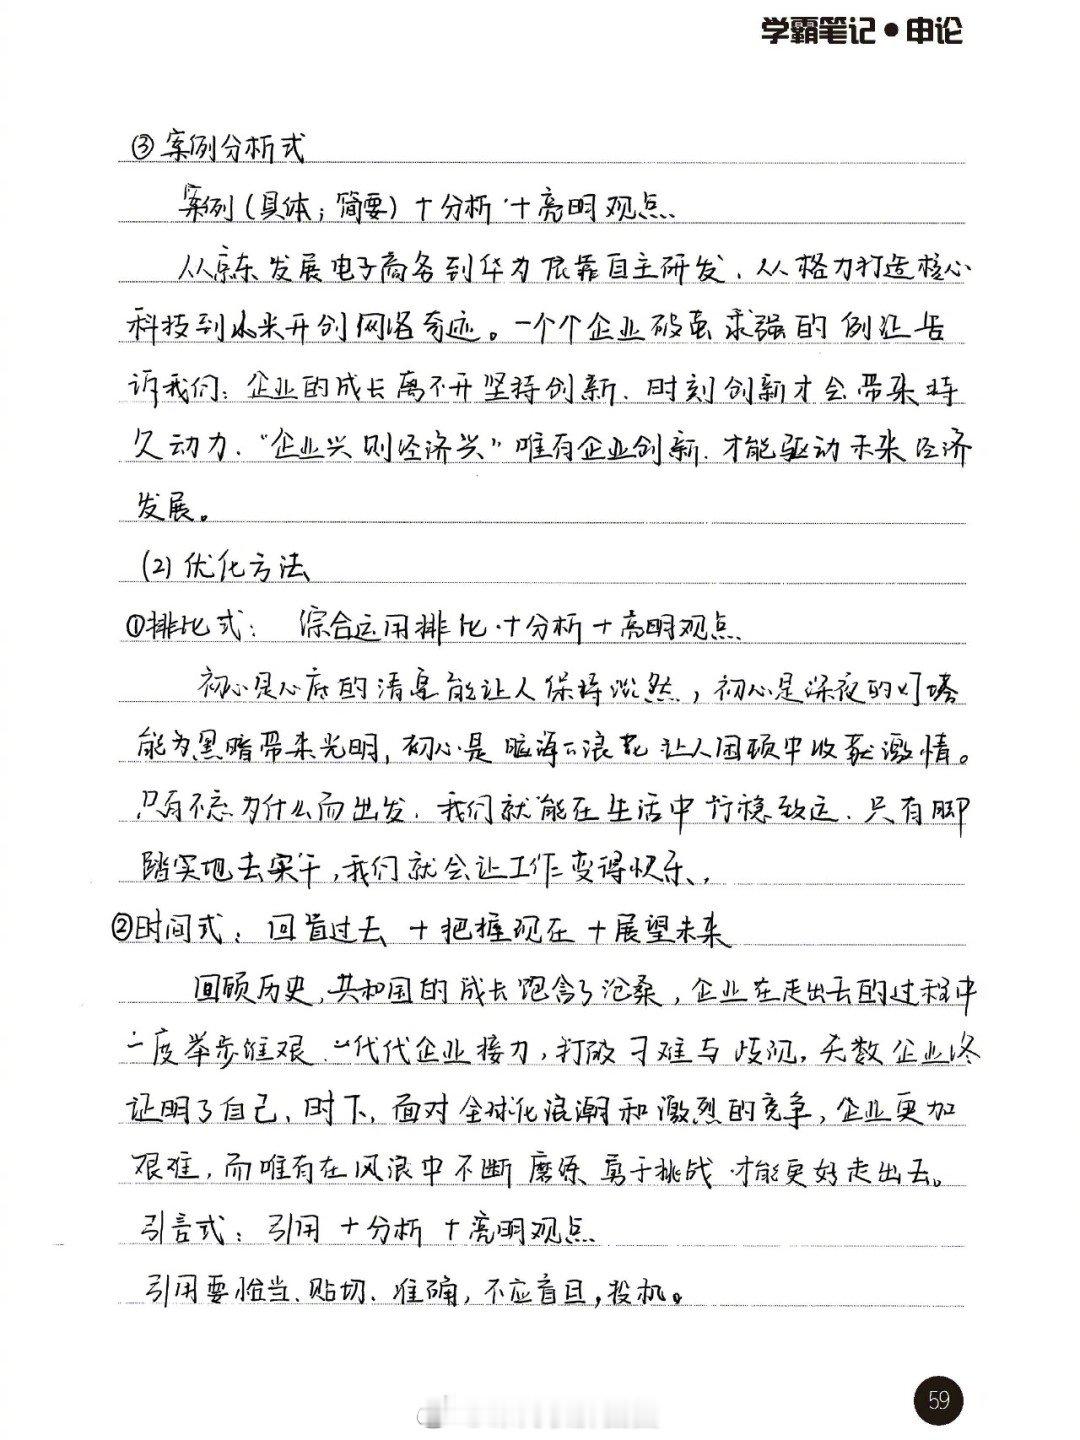 学霸笔记·申论
③案例分析式
案例(具体；简要)+分析+亮明观点
从京东发展电子商务到华为依靠自主研发，从格力打造核心
科技到小米开创网络奇迹。一个个企业破茧求强的例证告
诉我们：企业的成长离不开坚持创新，时刻创新才会带来持
久动力，“企业兴则经济兴”唯有企业创新，才能驱动未来经济
发展。
(2)优化方法
①排比式：综合运用排比+分析+亮明观点
初心是心底的清泉能让人保持淡然，初心是深夜的灯塔
能为黑暗带来光明，初心是瀚海的浪花让人困顿中收获激情。
只有不忘为什么而出发，我们就能在生活中行稳致远，只有脚
踏实地去实干，我们就会让工作变得快乐，
②时间式：回首过去+把握现在+展望未来
回顾历史，共和国的成长饱含了沧桑，企业在走出去的过程中
一度举步维艰，一代代企业接力，打破刁难与歧视，无数企业终
证明了自己，时下，面对全球化浪潮和激烈的竞争，企业更加
艰难，而唯有在风浪中不断磨练勇于挑战才能更好走出去。
引言式：引用+分析+亮明观点
引用要恰当、贴切、准确，不应盲目，投机。
59